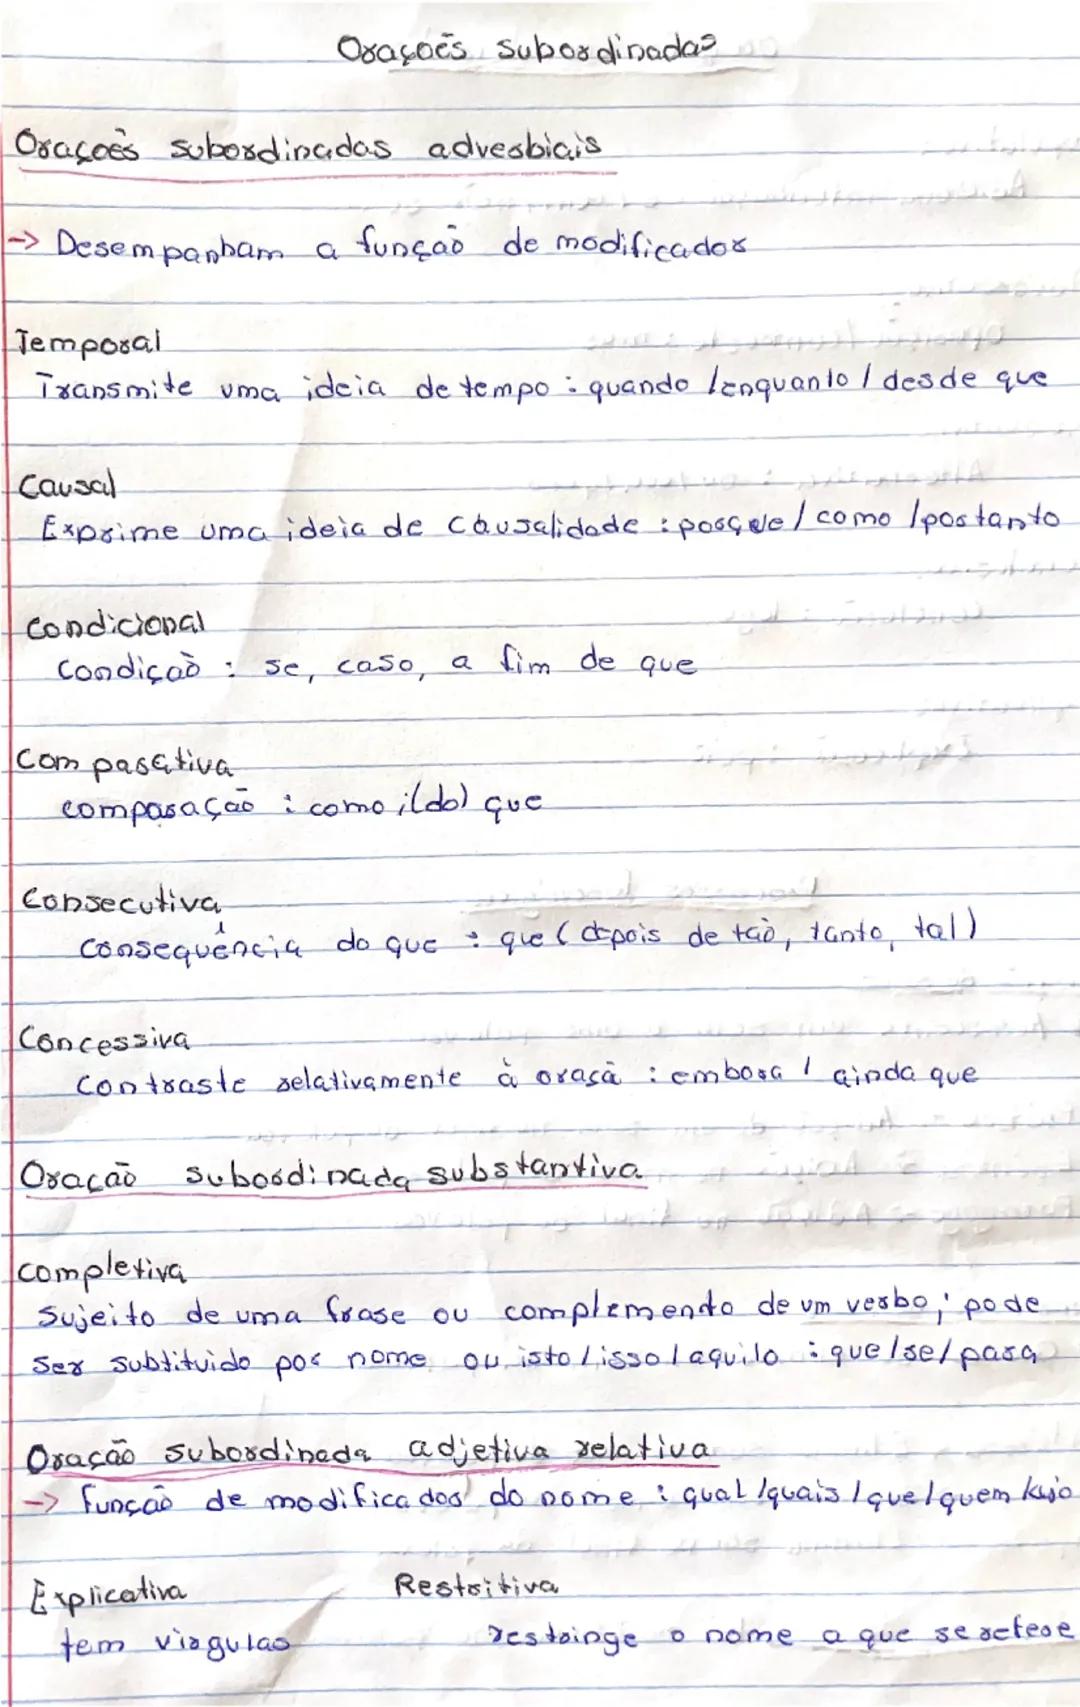 Orações subordinadas
Orações subordinadas adverbiais
-> Desempanham a função de modificador
Temporal
Transmite uma ideia de tempo : quando / enquanto / desde que
Causal
Exprime uma ideia de causalidade : porque / como / portanto
Condicional
Condição : se, caso, a fim de que
Comparativa
comparação : como ; (do) que
Consecutiva
consequência do que : que ( depois de tão, tanto, tal )
Concessiva
Contraste relativamente à oraçã : embora / ainda que
Oração subordinada substantiva
Completiva
Sujeito de uma frase ou complemento de um verbo ; pode
ser subtituido por nome ou isto / isso / aquilo : que / se / para
Oração subordinada adjetiva relativa
-> função de modificador do nome : qual / quais / que / quem
Explicativa Restritiva
tem virgulas restringe o nome a que se refere